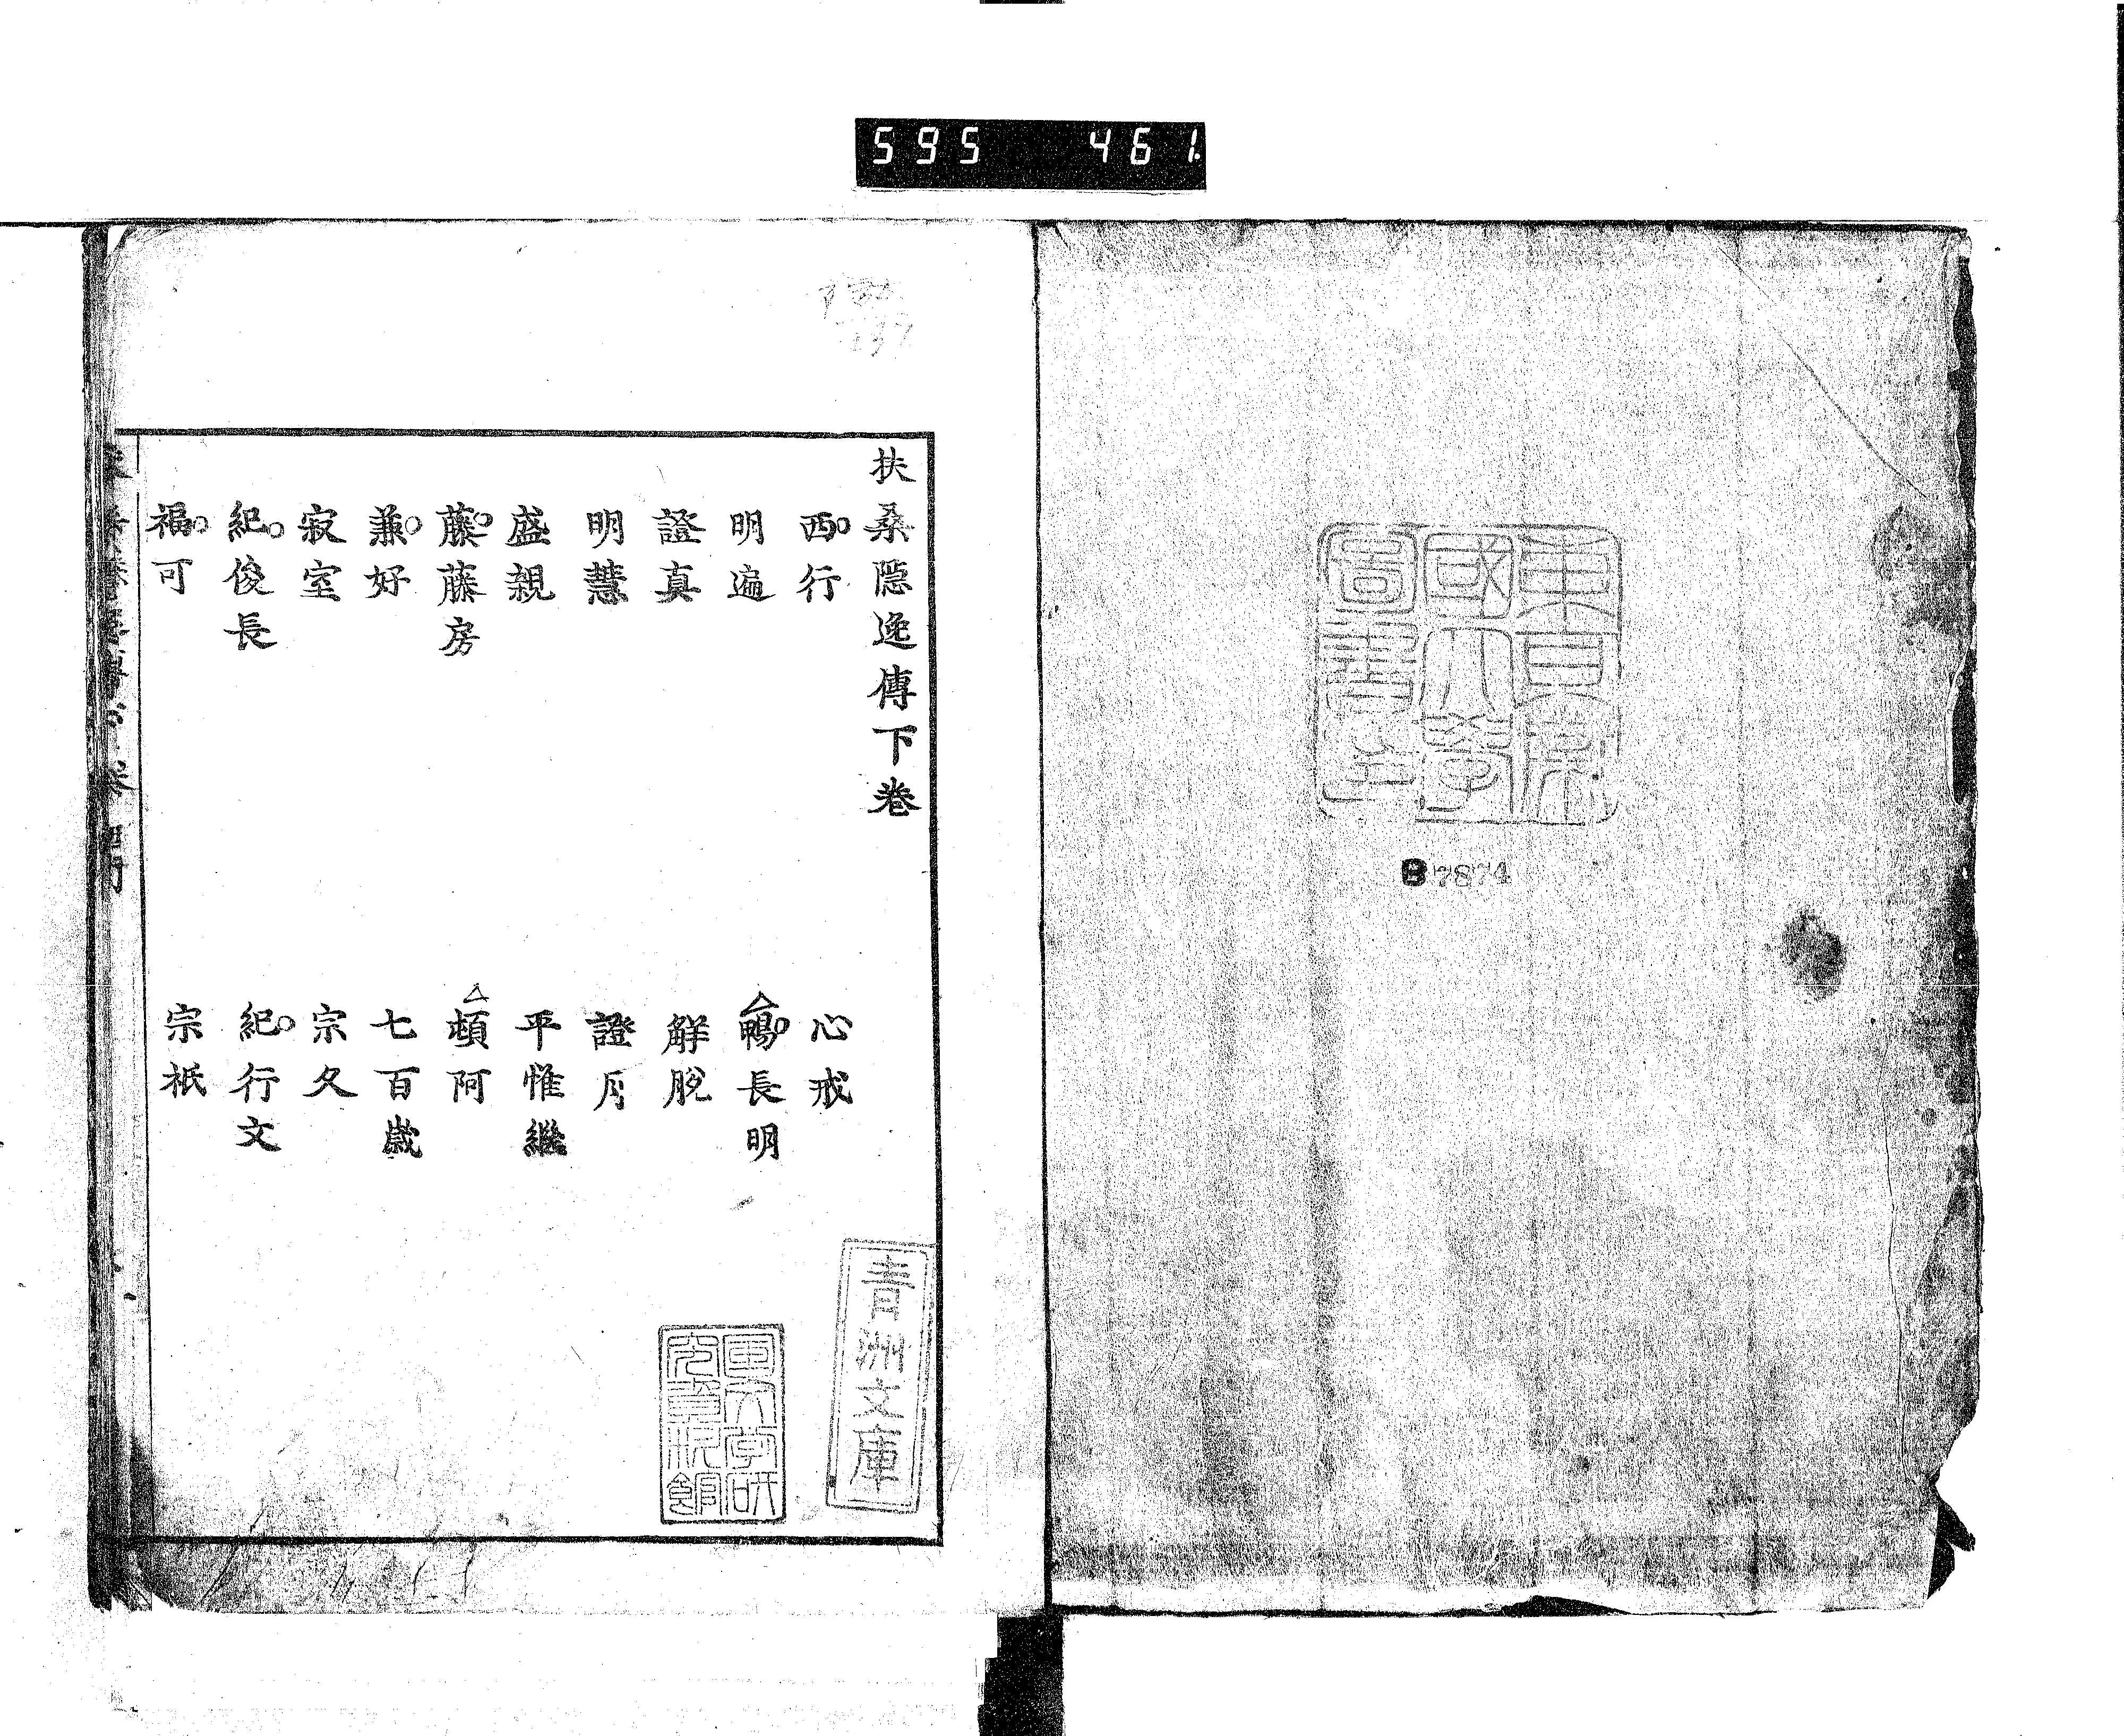 595 461
東京帝
國大學
圖書印
B 7874
扶桑隱逸傳下卷
西行 心戒
明遍 鴨長明
證真 解脫
明慧 證月
盛親 平惟繼
藤藤房 頓阿
兼好 七百歲
寂室 宗久
紀俊長 紀行文
福可 宗祇
青洲文庫
国文学研
究資料館